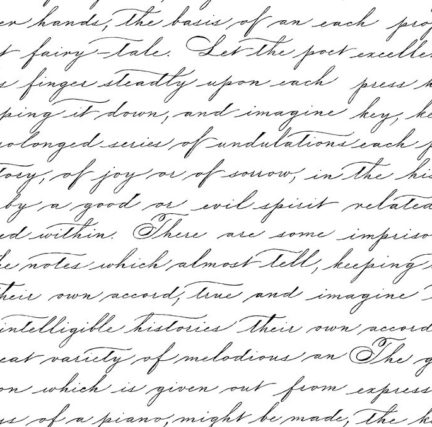 er hands, the basis of an each pro
t fairy-tale. Let the poet excelle
s finger steadly upon each press k
ping it down, and imagine key, ke
rolonged series of undulations each p
tory, of joy or of sorrow, in the his
by a good or evil spirit related
ed within. There are some impriso
he notes which almost tell, keeping
heir own accord, true and imagine
intelligible histories their own accord
eat variety of melodious an The g
on which is given out from express
ss of a piano, might be made, the k